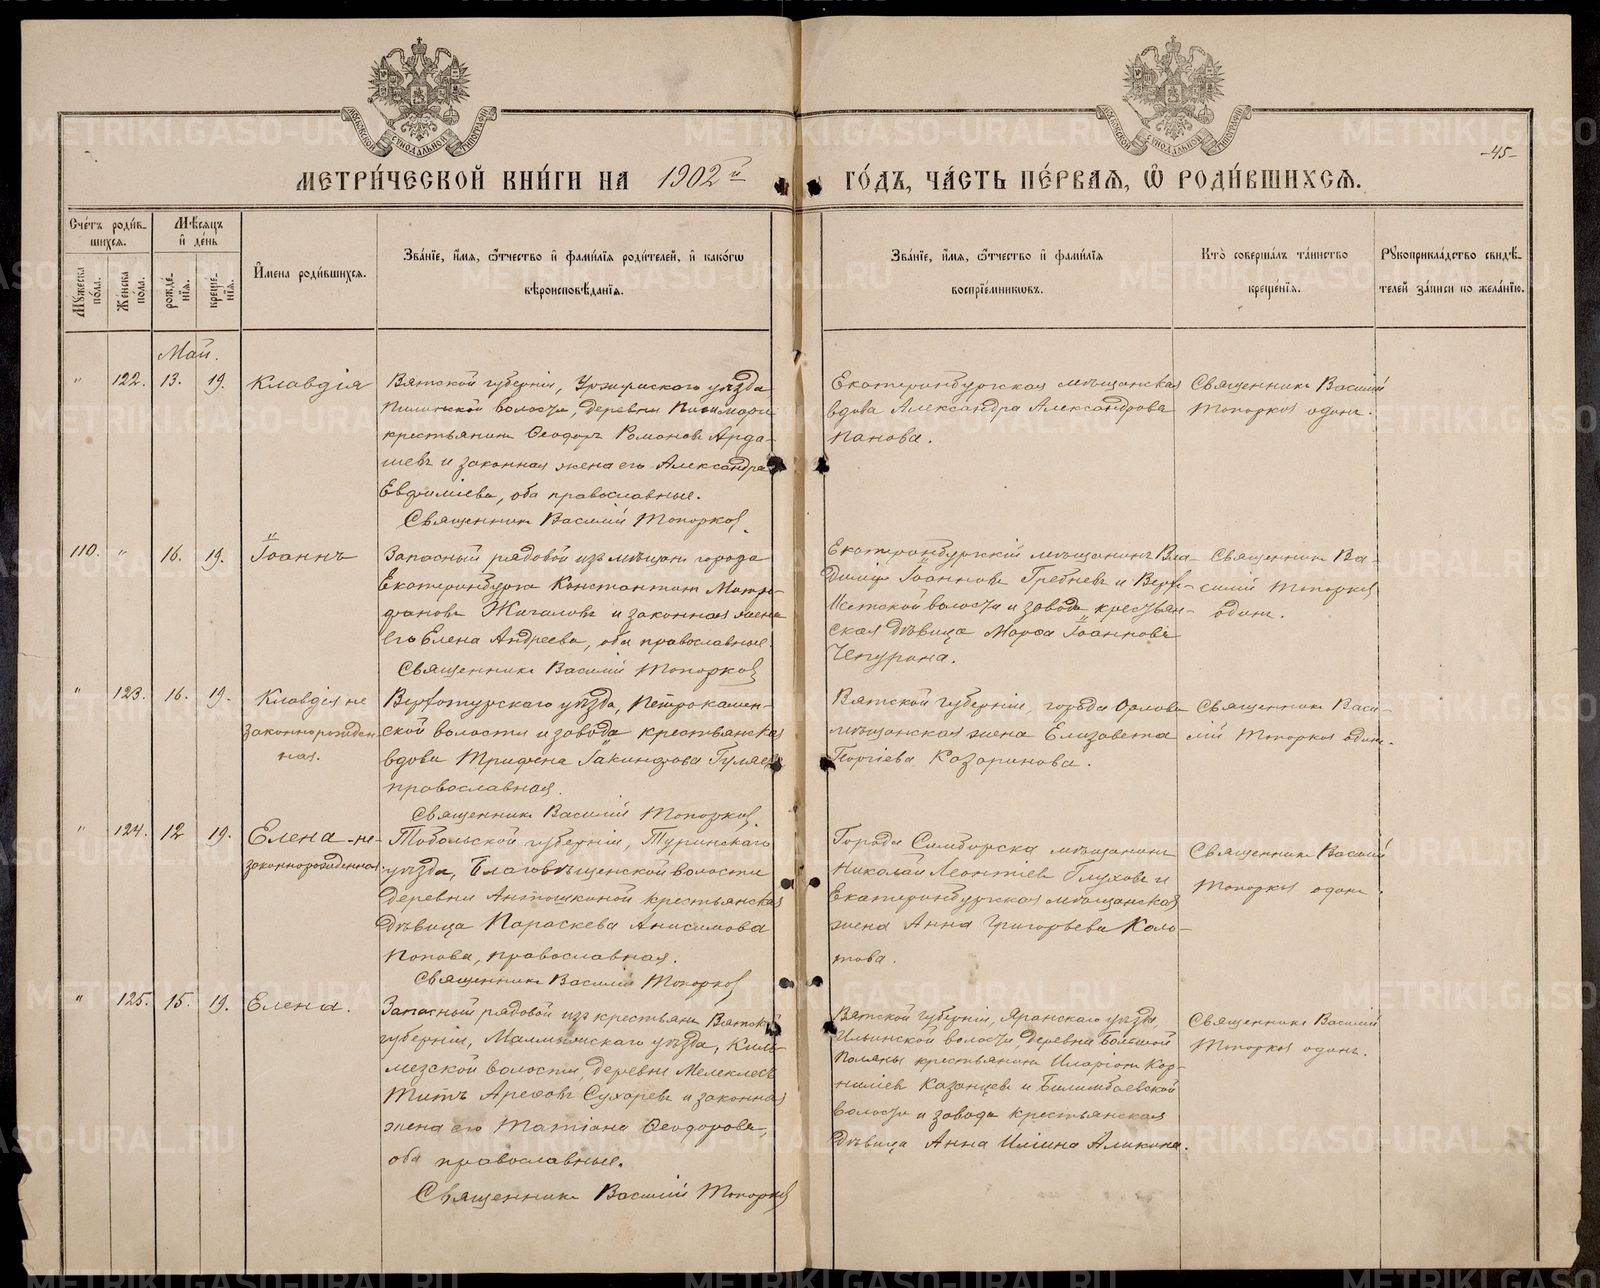 МЕТРИ́ЧЕСКОЙ КНИ́ГИ НА 1902й ГО́ДЪ, ЧА́СТЬ ПЕ́РВАѦ, Ѡ РОДИ́ВШИХСѦ.
-45-
Сче́тъ роди́в-
шихсѧ.
Мѣ́сѧцъ
и҆ де́нь
Мꙋ́жеска по́ла.
Же́нска по́ла.
рожде́-
нїѧ.
креще́-
нїѧ.
И҆мена̀ роди́вшихсѧ.
Зва́нїе, и҆́мѧ, ѻ҆́тчество и҆ фами́лїѧ роди́телей, и҆ како́гѡ
вѣроисповѣ́данїѧ.
Зва́нїе, и҆́мѧ, ѻ҆́тчество и҆ фами́лїѧ
воспрїе́мникѡвъ.
Кто̀ соверша́лъ та́инство
креще́нїѧ.
Рꙋкоприкла́дство свидѣ́-
телей за́писи по жела́нїю.
Май.
" 122. 13. 19. Клавдія
Вятской губерніи, Уржумскаго уѣзда
волости, деревни
крестьянинъ Ѳеодоръ Романовъ Арда-
шевъ и законная жена его Александра
Евфиміева, оба православные.
Священникъ Василій Топорковъ.
Екатеринбургская мѣщанская
вдова Александра Александрова
Панова.
Священникъ Василій
Топорковъ одинъ.
110. " 16. 19. Іоаннъ
Запасный рядовой изъ мѣщанъ города
Екатеринбурга Константинъ Митро-
фановъ Жигаловъ и законная жена
его Елена Андреева, оба православные.
Священникъ Василій Топорковъ
Екатеринбургскій мѣщанинъ Вла-
диміръ Іоанновъ Гребневъ и Верхъ-
Исетской волости и завода крестьян-
ская дѣвица Марѳа Іоаннова
Чепурина.
Священникъ Ва-
силій Топорковъ
одинъ.
" 123. 16. 19. Клавдія не
законнорожден
ная.
Верхотурскаго уѣзда, Петрокамен-
ской волости и завода крестьянская
вдова Трифена Іакинфова Гуляева
православная.
Священникъ Василій Топорковъ.
Вятской губерніи, города Орлова
мѣщанская жена Елизавета
Георгіева Казаринова.
Священникъ Васи-
лій Топорковъ одинъ.
" 124. 12 19. Елена - не-
законнорожденная
Тобольской губерніи, Туринскаго
уѣзда, Благовѣщенской волости
деревни Антошкиной крестьянская
дѣвица Параскева Анисимова
Попова, православная.
Священникъ Василій Топорковъ
Города Симбирска мѣщанинъ
Николай Леонтіевъ Глуховъ и
Екатеринбургская мѣщанская
жена Анна Григорьева Коло-
това.
Священникъ Василій
Топорковъ одинъ.
" 125. 15. 19. Елена.
Запасный рядовой изъ крестьянъ Вятской
губерніи, Малмыжскаго уѣзда, Киль-
мезской волости, деревни Мелеклесъ
Титъ Сухаревъ и законная
жена его Татіана Ѳеодорова,
оба православные.
Священникъ Василій Топорковъ
Вятской губерніи, Яранскаго уѣзда,
Ильинской волости, деревни Большой
Поляны крестьянинъ Иларіонъ Кор-
ниліевъ Казанцевъ и Билимбаевской
волости и завода крестьянская
дѣвица Анна Иліина Аликина.
Священникъ Василій
Топорковъ одинъ.
METRIKI.GASO-URAL.RU